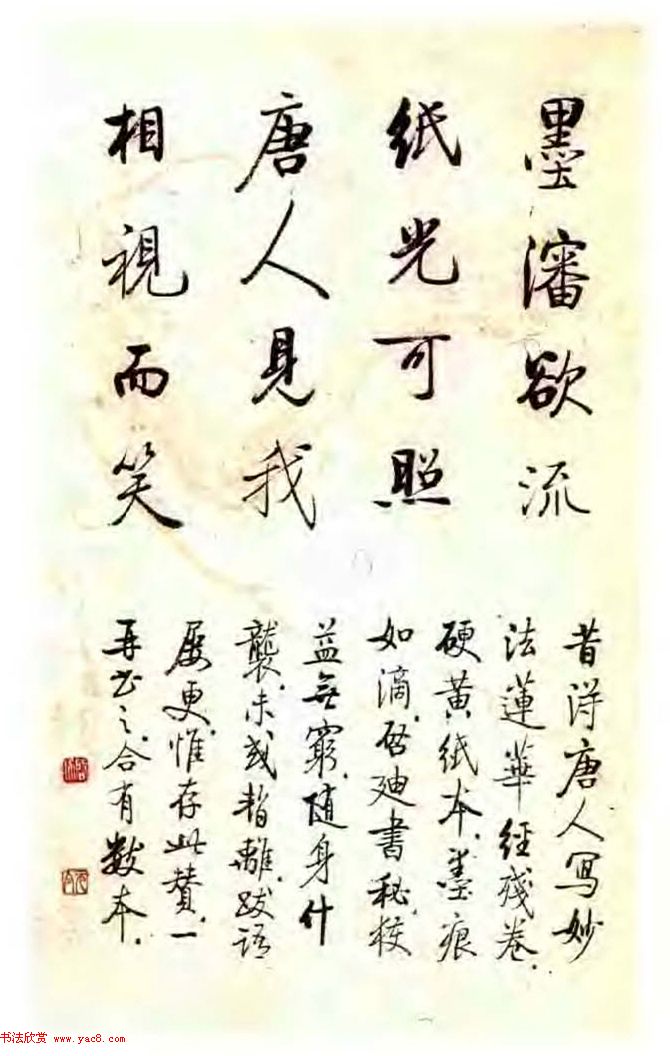 墨瀋欲流
紙光可照
唐人見我
相視而笑
昔得唐人寫妙
法蓮華經殘卷.
硬黃紙本.墨痕
如滴.啓迪書秘.獲
益無窮.隨身什
襲.未或暫離.跋語
屢更.惟存此贊.一
再書之.合有數本.
书法欣赏 www.yac8.com